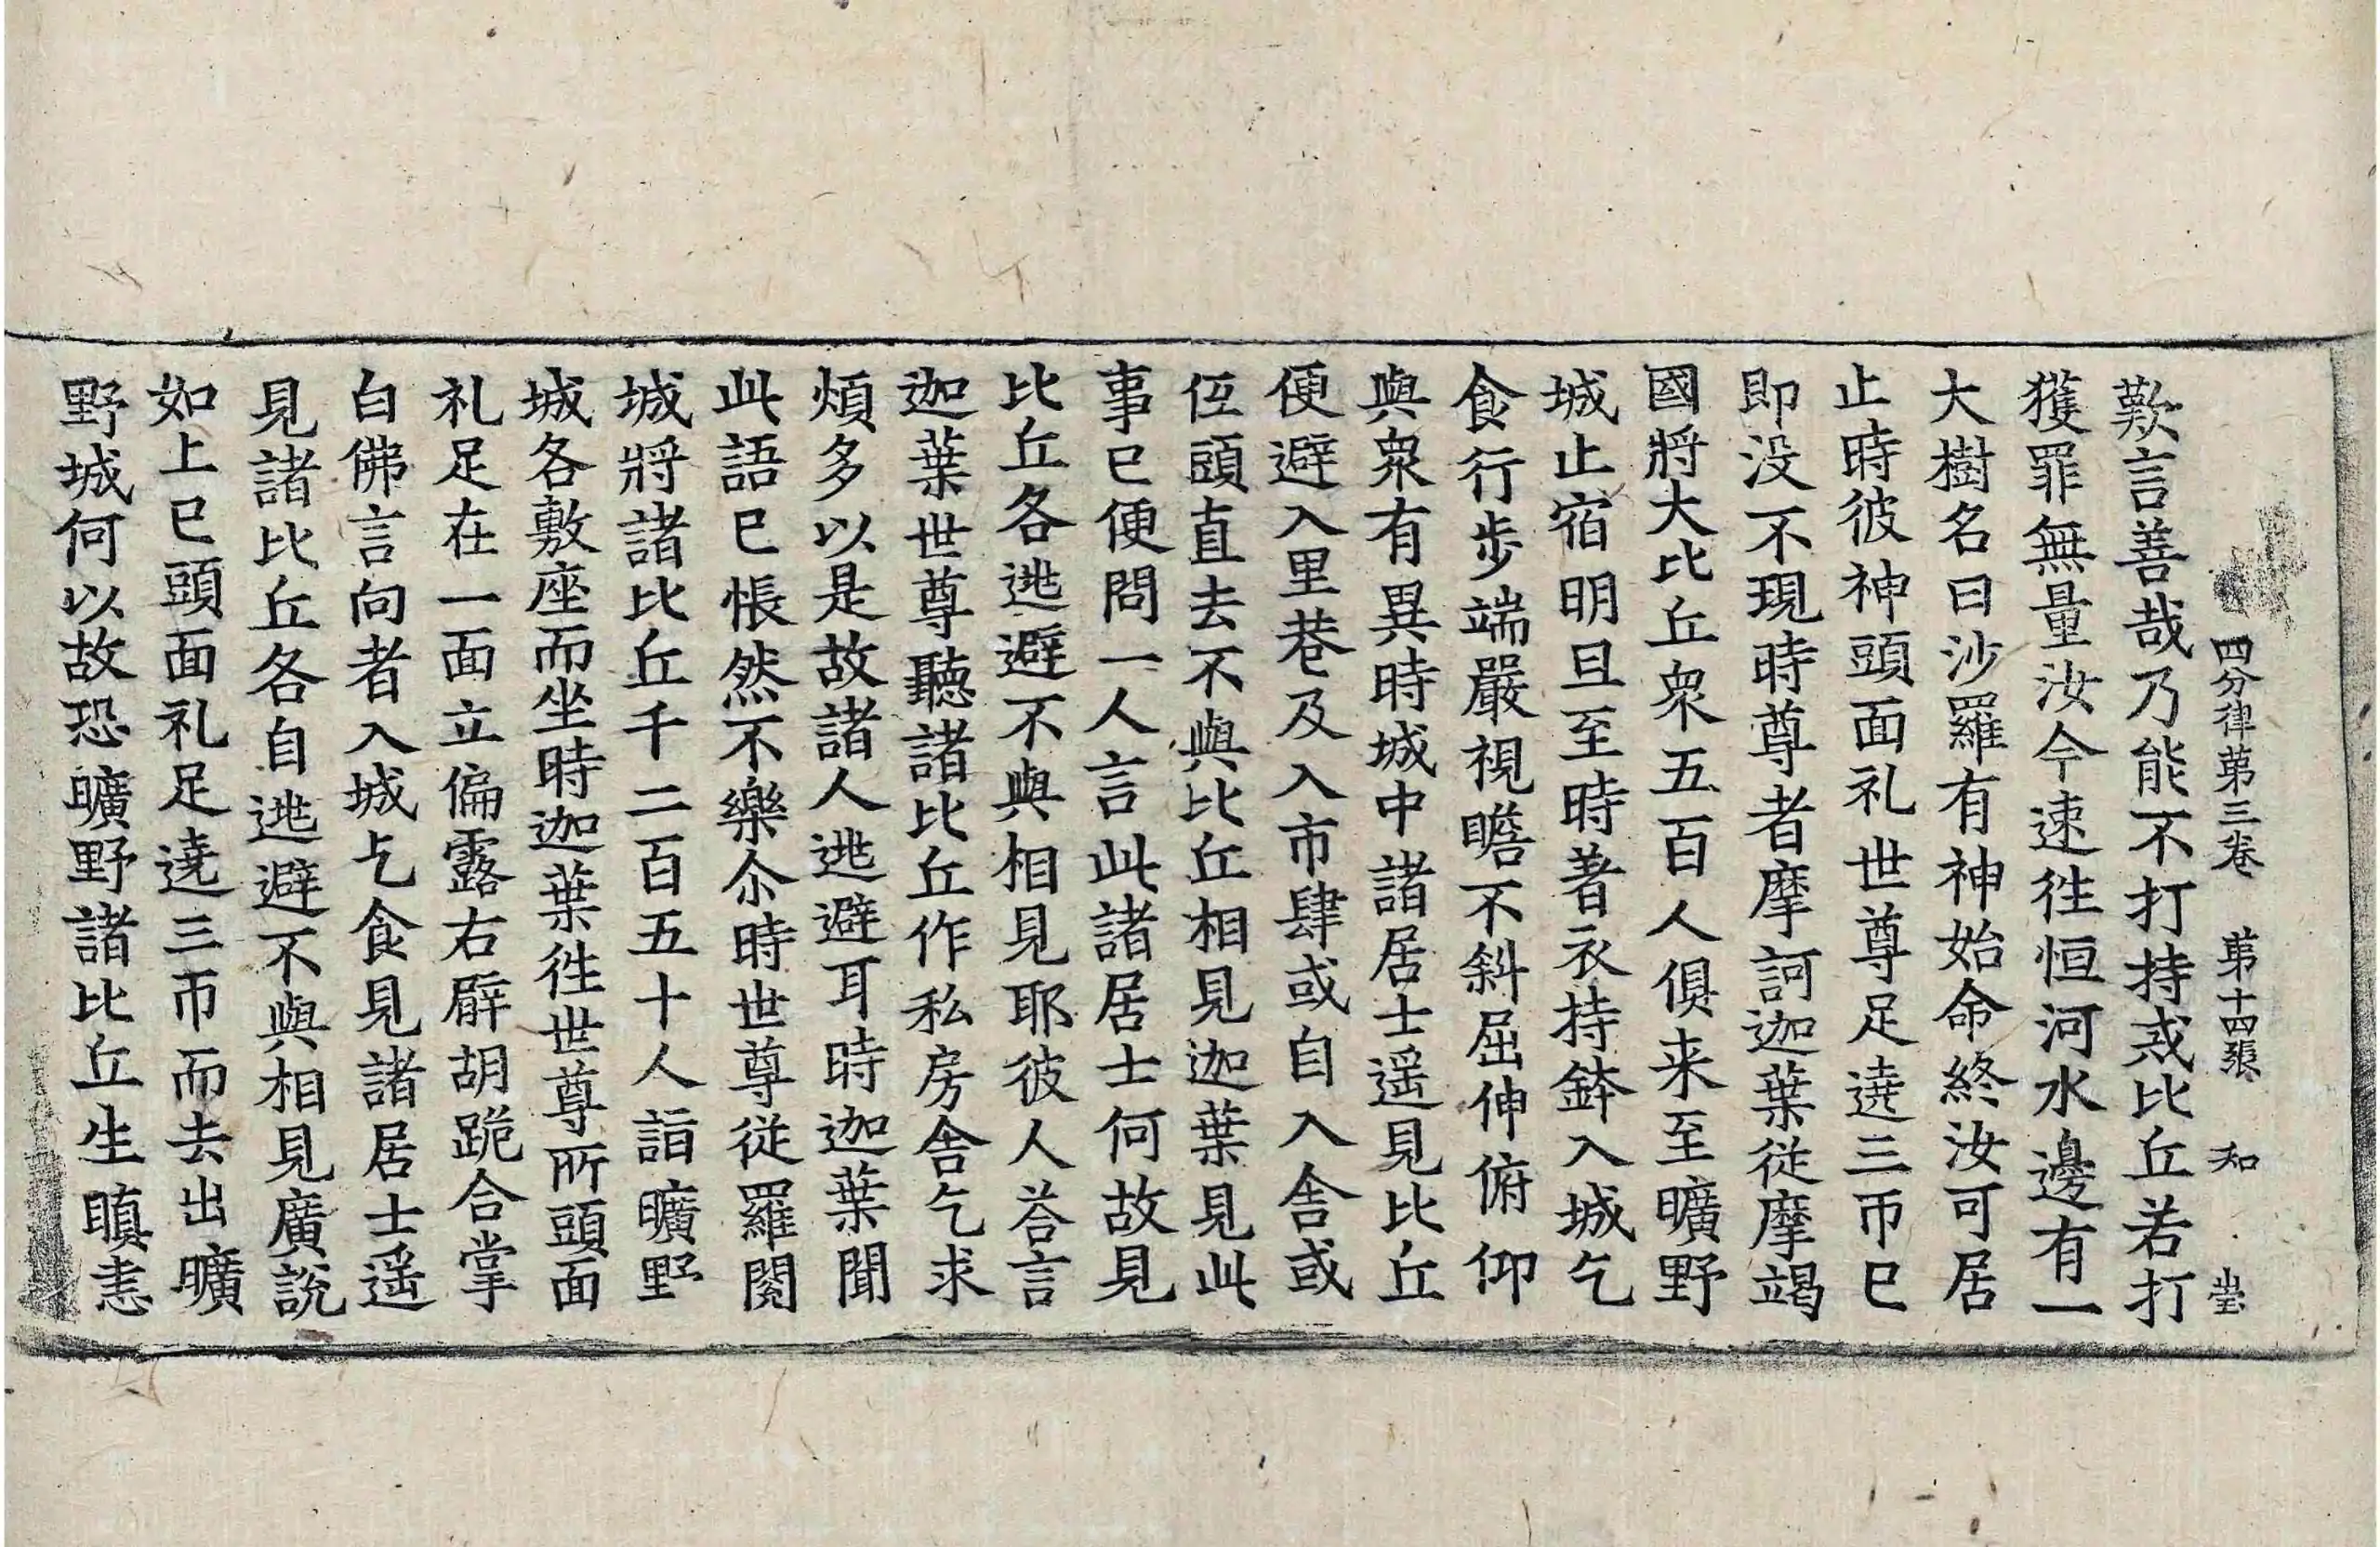 四分律苐三卷 苐十四張 知 瑩
歎言善哉乃能不打持戒比丘若打
獲罪無量汝今速徃恒河水邊有一
大樹名曰沙羅有神始命終汝可居
止時彼神頭面礼世尊足遶三帀已
即没不現時尊者摩訶迦葉従摩竭
國將大比丘衆五百人俱来至曠野
城止宿明旦至時著衣持鉢入城乞
食行步端嚴視瞻不斜屈伸俯仰
與衆有異時城中諸居士遥見比丘
便避入里巷及入市肆或自入舍或
伍頭直去不與比丘相見迦葉見此
事已便問一人言此諸居士何故見
比丘各逃避不與相見耶彼人荅言
迦葉世尊聽諸比丘作私房舍乞求
煩多以是故諸人逃避耳時迦葉聞
此語已悵然不樂尒時世尊従羅閱
城將諸比丘千二百五十人詣曠野
城各敷座而坐時迦葉徃世尊所頭面
礼足在一面立偏露右髆胡跪合掌
白佛言向者入城乞食見諸居士遥
見諸比丘各自逃避不與相見廣說
如上已頭面礼足遶三帀而去出曠
野城何以故恐曠野諸比丘生瞋恚